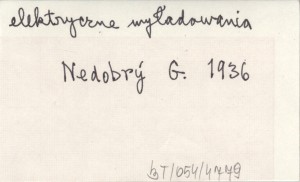 elektryczne wyładowania
Nedobrý G. 1936
bT/054/4779